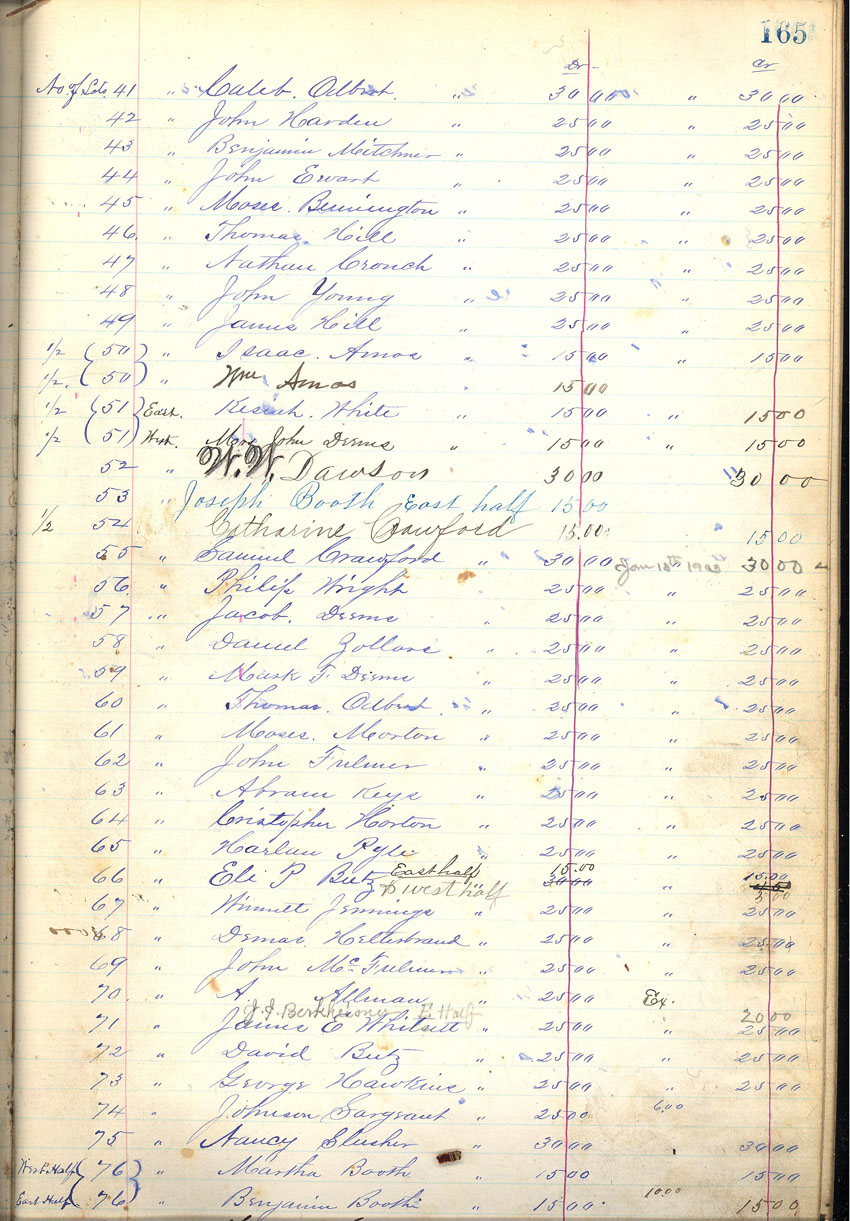 165
Dr Cr
No of Lots 41 " Caleb. Olbert. " 30 00 " 30 00
42 " John Harden " 25 00 " 25 00
43 " Benjamin Mitchner " 25 00 " 25 00
44 " John Ewart " 25 00 " 25 00
45 " Moses. Bennington " 25 00 " 25 00
46. " Thomas. Hill " 25 00 " 25 00
47 " Nathan Crouch " 25 00 " 25 00
48 " John Young " 25 00 " 25 00
49 " James Hill " 25 00 " 25 00
1/2 (50) " Isaac. Amos " 15 00 " 15 00
1/2. (50) " Wm Amos 15 00
1/2 (51) East. Kesiah. White " 15 00 " 15 00
1/2 (51) West. John Deems " 15 00 " 15 00
52 " W. W. Dawson 30 00 " 30 00
53 " Joseph Booth East half 15 00
1/2 54 Catharine Crawford 15.00 15 00
55 " Samuel Crawford " 30 00 Jan 13th 1903 30 00
56. " Philip Wright 25 00 " 25 00
57 " Jacob. Deems 25 00 " 25 00
58 " Daniel Zollars " 25 00 " 25 00
59 " Mark F Deems " 25 00 " 25 00
60 " Thomas. Olbert. " 25 00 " 25 00
61 " Moses. Morton " 25 00 " 25 00
62 " John Fulmer " 25 00 " 25 00
63 " Abram Keys " 25 00 " 25 00
64 " Cristopher Horton " 25 00 " 25 00
65 " Harlan Pyle " 25 00 " 25 00
66 " Eli P Butz East half 15.00 30 00 " 15.00
& west half 5 00
67 " Jennings " 25 00 " 25 00
68 " Demas. Hellerbrand " 25 00 " 25 00
69 " John Mc Fulmer " 25 00 " 25 00
70. " A Allman " 25 00 Ex.
E. Half 20 00
71 " James E Whitsett " 25 00 " 25 00
72 " David Butz " 25 00 " 25 00
73 " George Hawkins " 25 00 " 25 00
74 " Johnson Sargeant " 25 00 6.00
75 " Nancy Slusher " 30 00 30 00
West Half (76) " Martha Booth " 15 00 " 15 00
East Half (76) " Benjamin Booth " 15 00 10.00 15 00